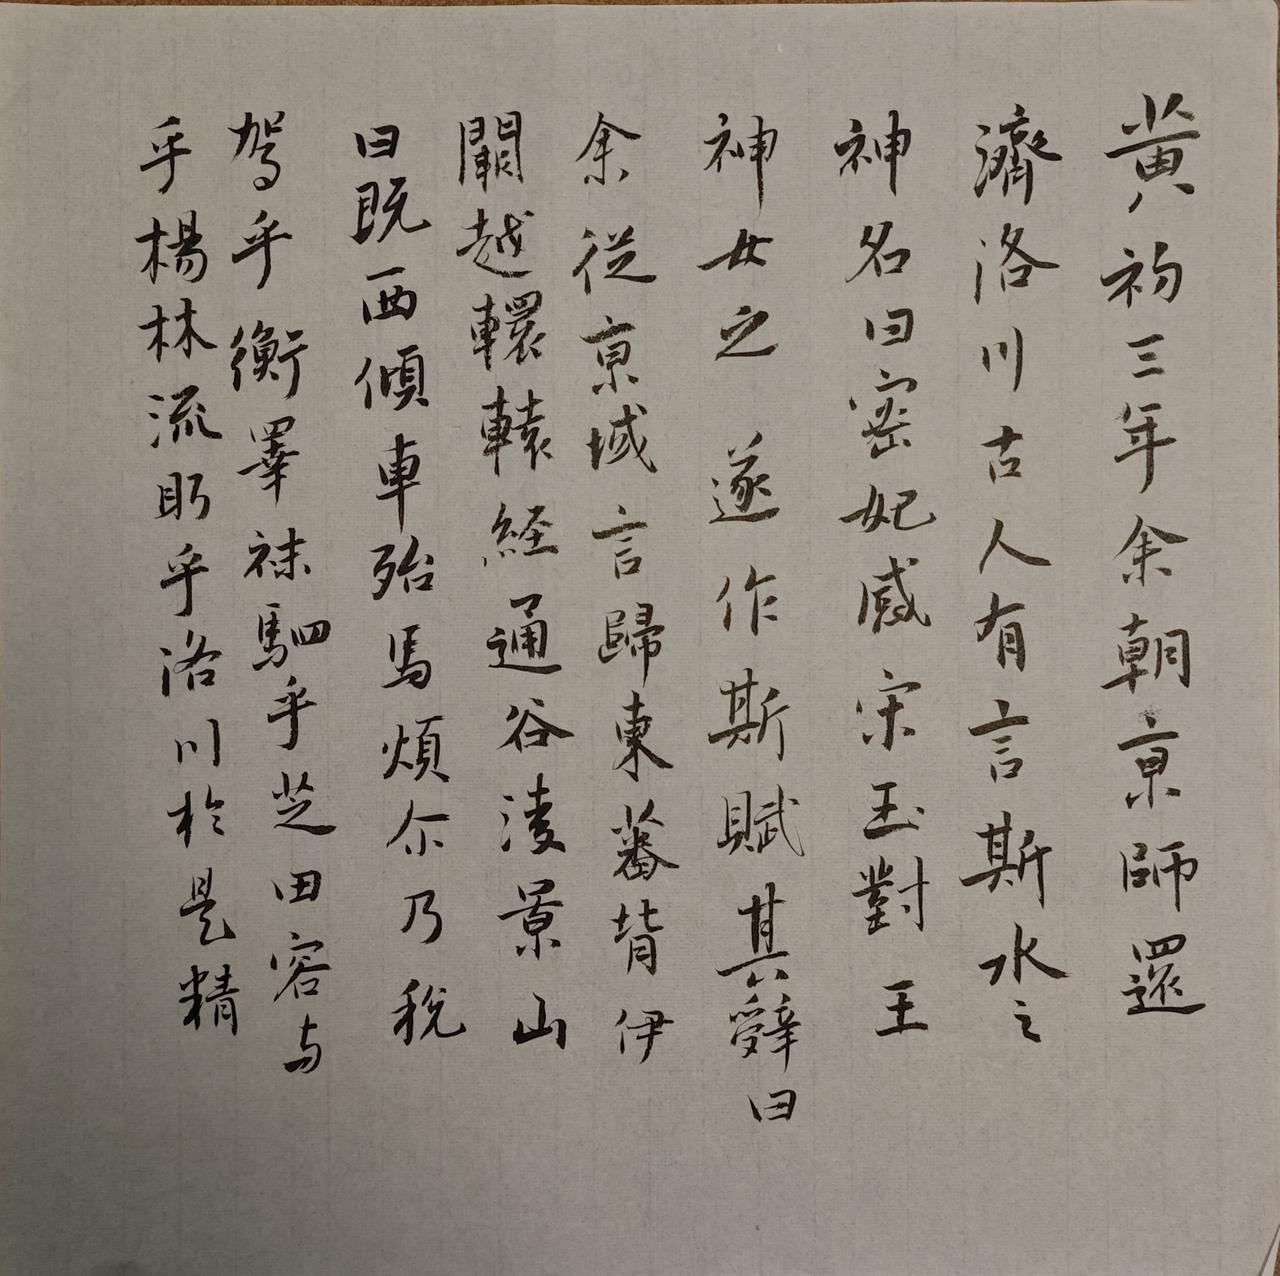 黄初三年余朝京師還
濟洛川古人有言斯水之
神名曰宓妃感宋玉對王
神女之遂作斯賦其辭曰
余從京域言歸東蕃背伊
闕越轘轅経通谷淩景山
日既西傾車殆馬煩尓乃稅
駕乎衡睪秣駟乎芝田容与
乎楊林流眄乎洛川於是精